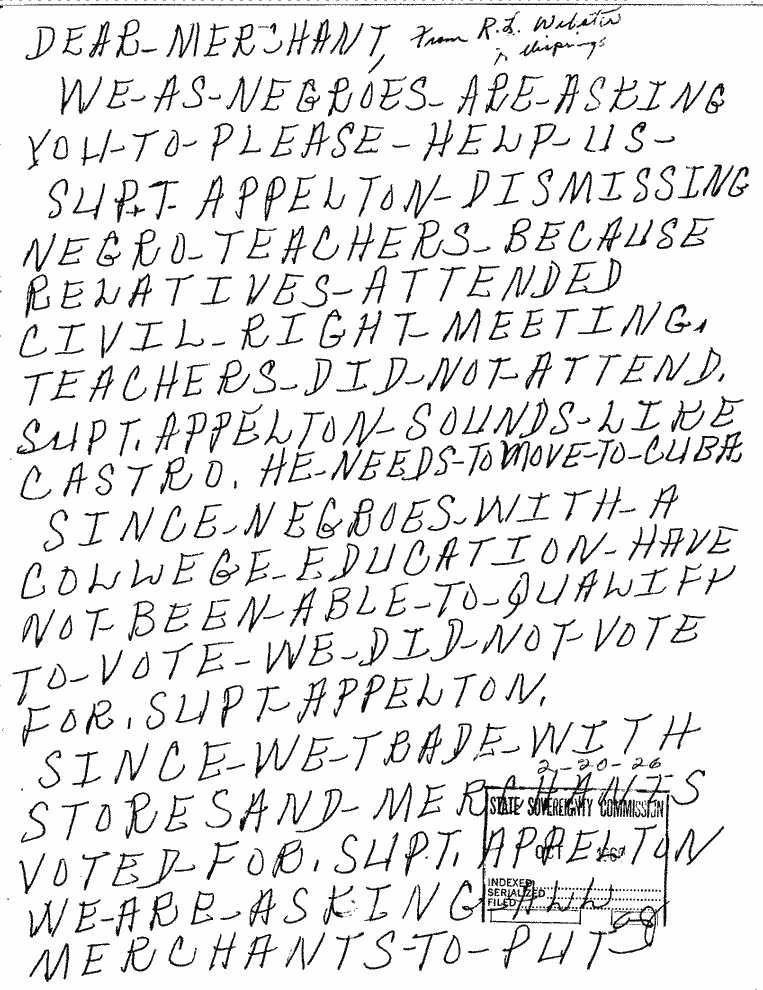 DEAR-MERCHANT, From R.L. Webster
WE-AS-NEGROES-ARE-ASKING
YOU-TO-PLEASE-HELP-US-
SUPT. APPELTON-DISMISSING
NEGRO-TEACHERS-BECAUSE
RELATIVES-ATTENDED
CIVIL-RIGHT-MEETING.
TEACHERS-DID-NOT-ATTEND.
SUPT. APPELTON-SOUNDS-LIKE
CASTRO. HE-NEEDS-TO MOVE-TO-CUBA.
SINCE-NEGROES-WITH-A
COLLEGE-EDUCATION-HAVE
NOT-BEEN-ABLE-TO-QUALIFY
TO-VOTE-WE-DID-NOT-VOTE
FOR. SUPT-APPELTON.
SINCE-WE-TRADE-WITH
2-20-26
STORES AND-MERCHANTS
STATE SOVEREIGNTY COMMISSION
VOTED-FOR. SUPT. APPELTON
OCT
INDEXED
SERIALIZED
FILED
WE-ARE-ASKING-ALL
MERCHANTS-TO-PUT